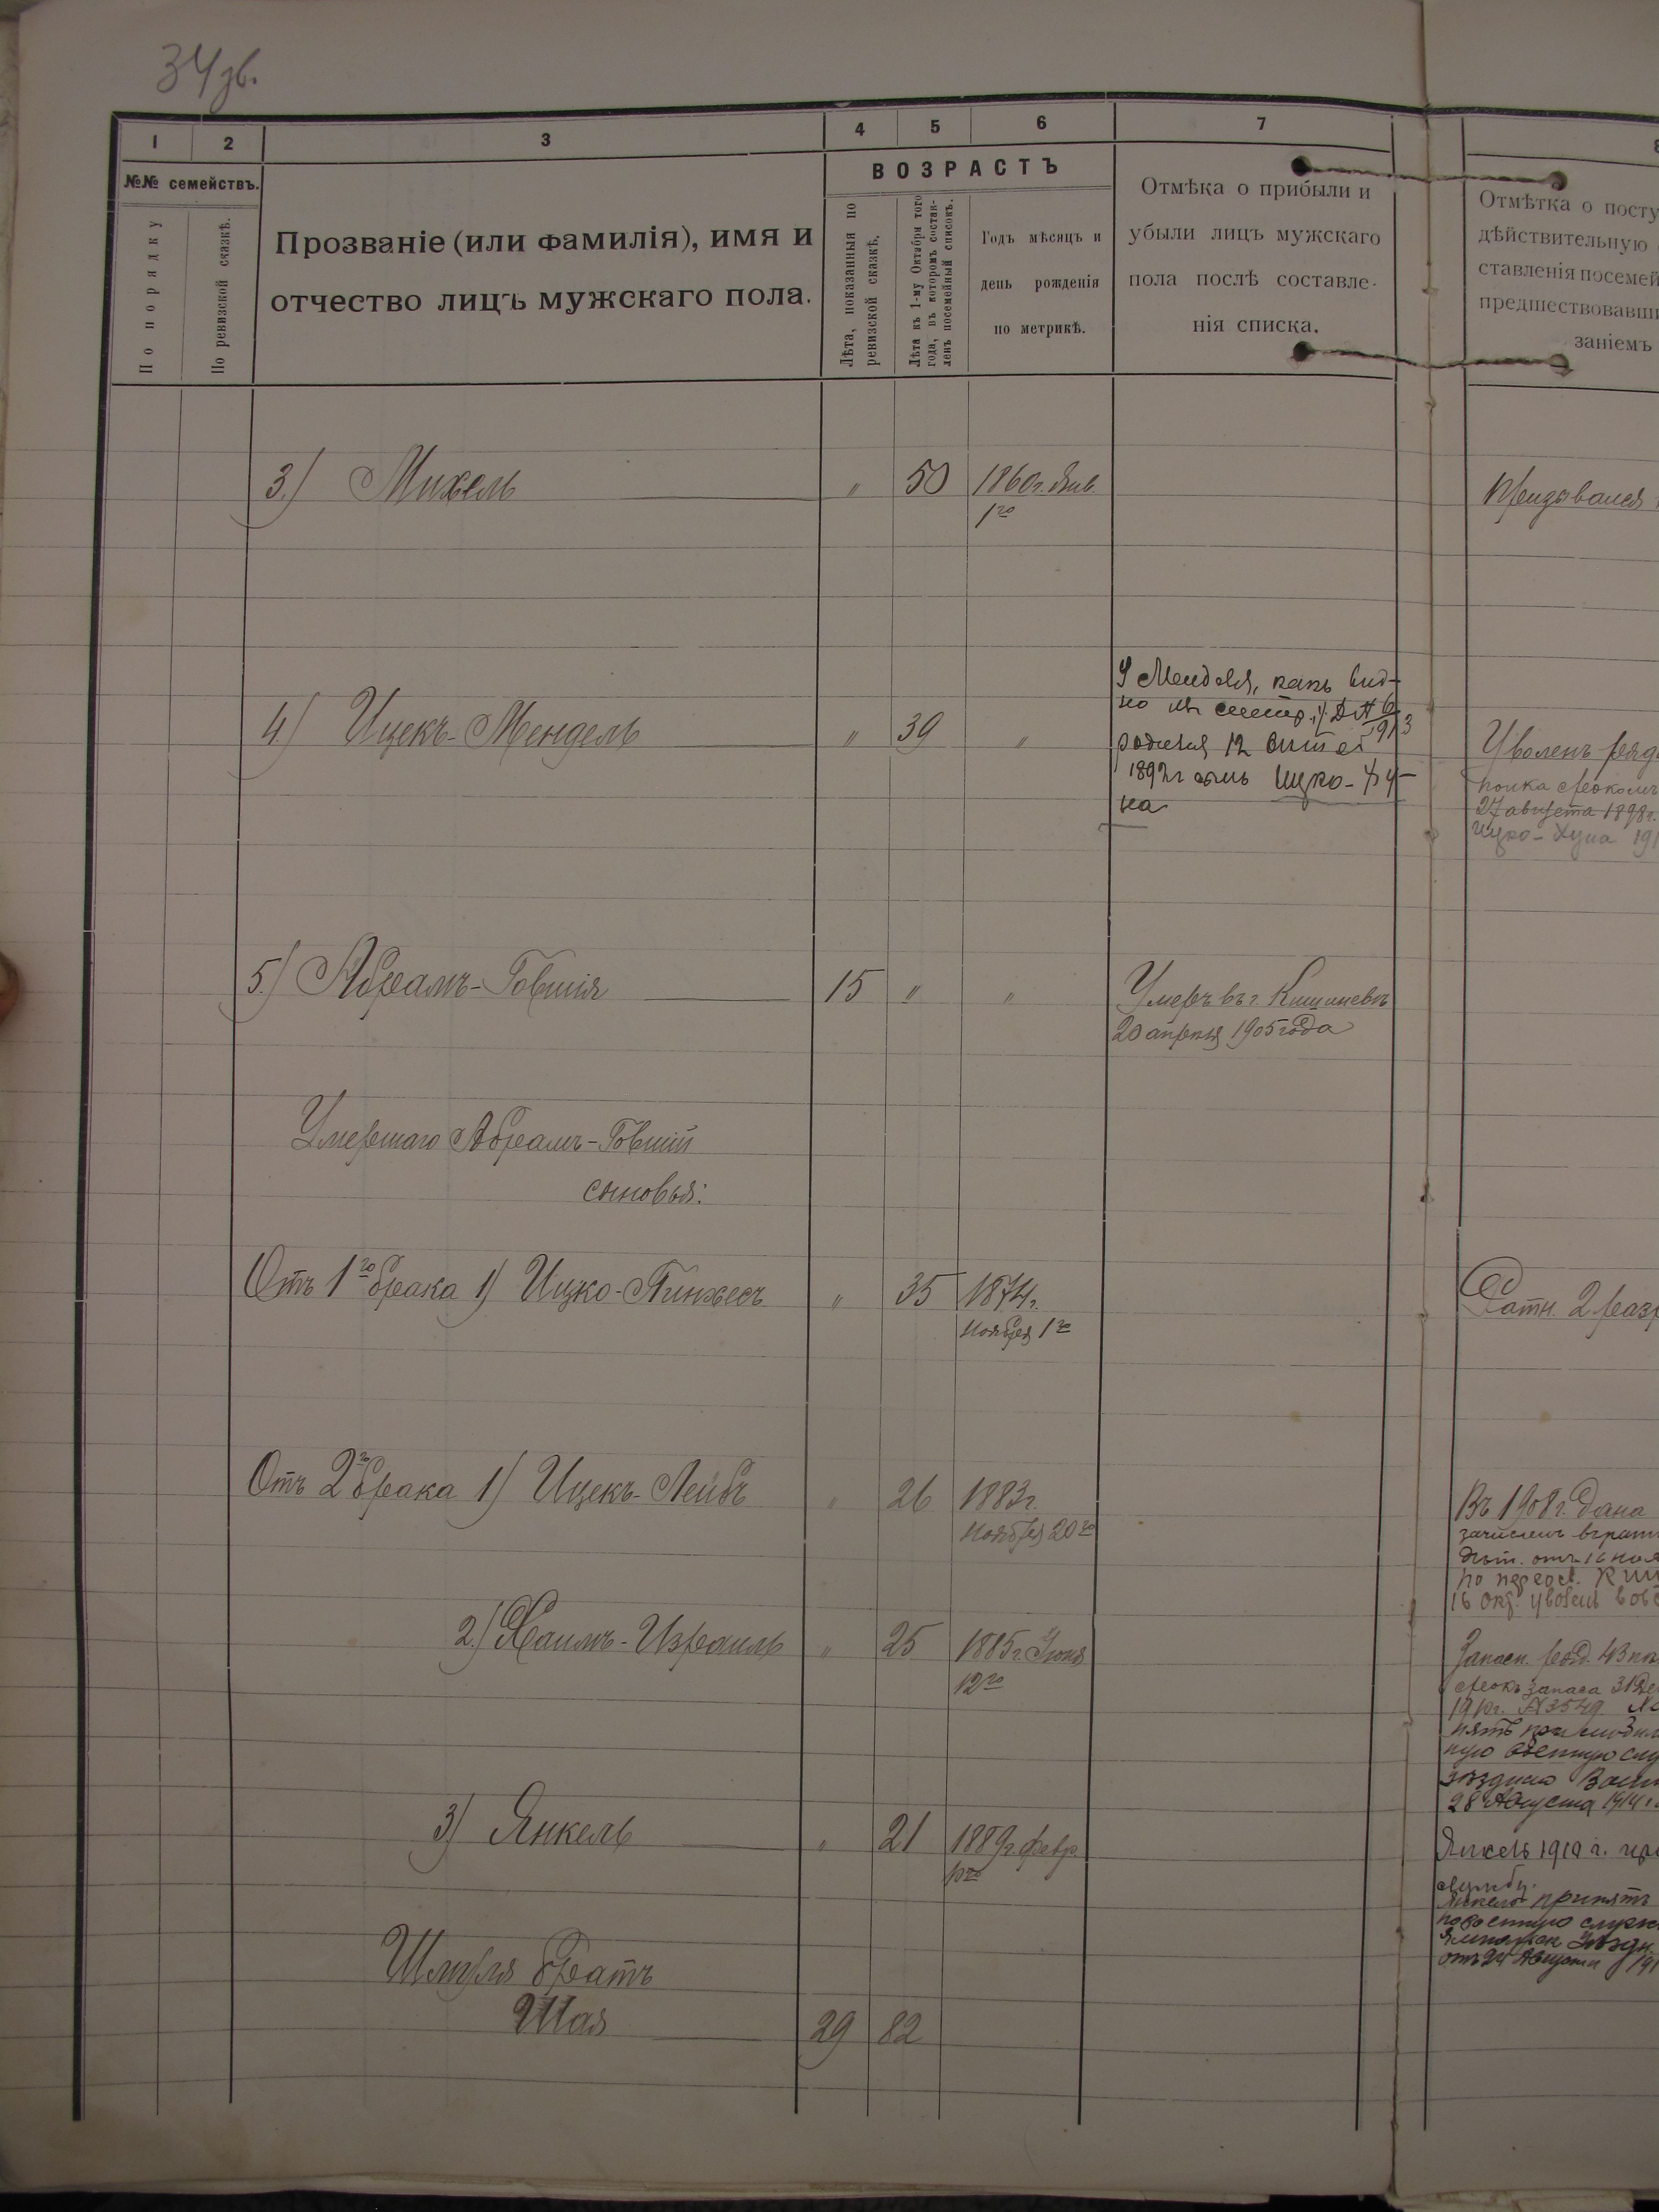 34 зв.
1 2 3 4 5 6 7 8
№№ семействъ.
По порядку
По ревизской сказкѣ.
Прозваніе (или фамилія), имя и
отчество лицъ мужскаго пола.
ВОЗРАСТЪ
Лѣта, показанныя по
ревизской сказкѣ.
Лѣта къ 1-му Октября того
года, въ которомъ состав-
ленъ посемейный списокъ.
Годъ мѣсяцъ и
день рожденія
по метрикѣ.
Отмѣка о прибыли и
убыли лицъ мужскаго
пола послѣ составле-
нія списка.
Отмѣтка о посту
дѣйствительную
ставленія посемей
предшествовавши
заніемъ
3.) Михель " 50 1860г. Янв.
1го
Призывался
4.) Ицекъ-Мендель " 39 "
У Менделя, какъ вид-
но из
родился 12
1892г сынъ Ицко-Ху-
на
Уволенъ ряд
полка
27 августа 1898г.
Ицко-Хуна 191
5.) Абрамъ-Говшія 15 " "
Умеръ въ г. Кишиневѣ
20 апрѣля 1905 года
Умершаго Абрамъ-Говшій
сыновья:
Отъ 1го брака 1) Ицко-Пинхесъ " 35 1874г.
Ноября 1го
Ратн. 2 разр
Отъ 2го брака 1) Ицекъ-Лейбъ " 26 1883г.
Ноября 20го
Въ 1908г. дана
зачисленъ в ратн
отъ 16 ноя
16 Окт. уволенъ вовс
2.) Хаимъ-Израиль " 25 1885г. Іюня
12го
Запасн. ряд. 43
запаса 31 Де
191 г. № 3549
28 Августа 1914 г.
3) Янкель " 21 1889г. февр.
Янкель 1910 г.
службу.
Янкель принятъ
на военную служ
Уѣздн
отъ 24 Августа 191
Шмуля братъ
Шая 29 82